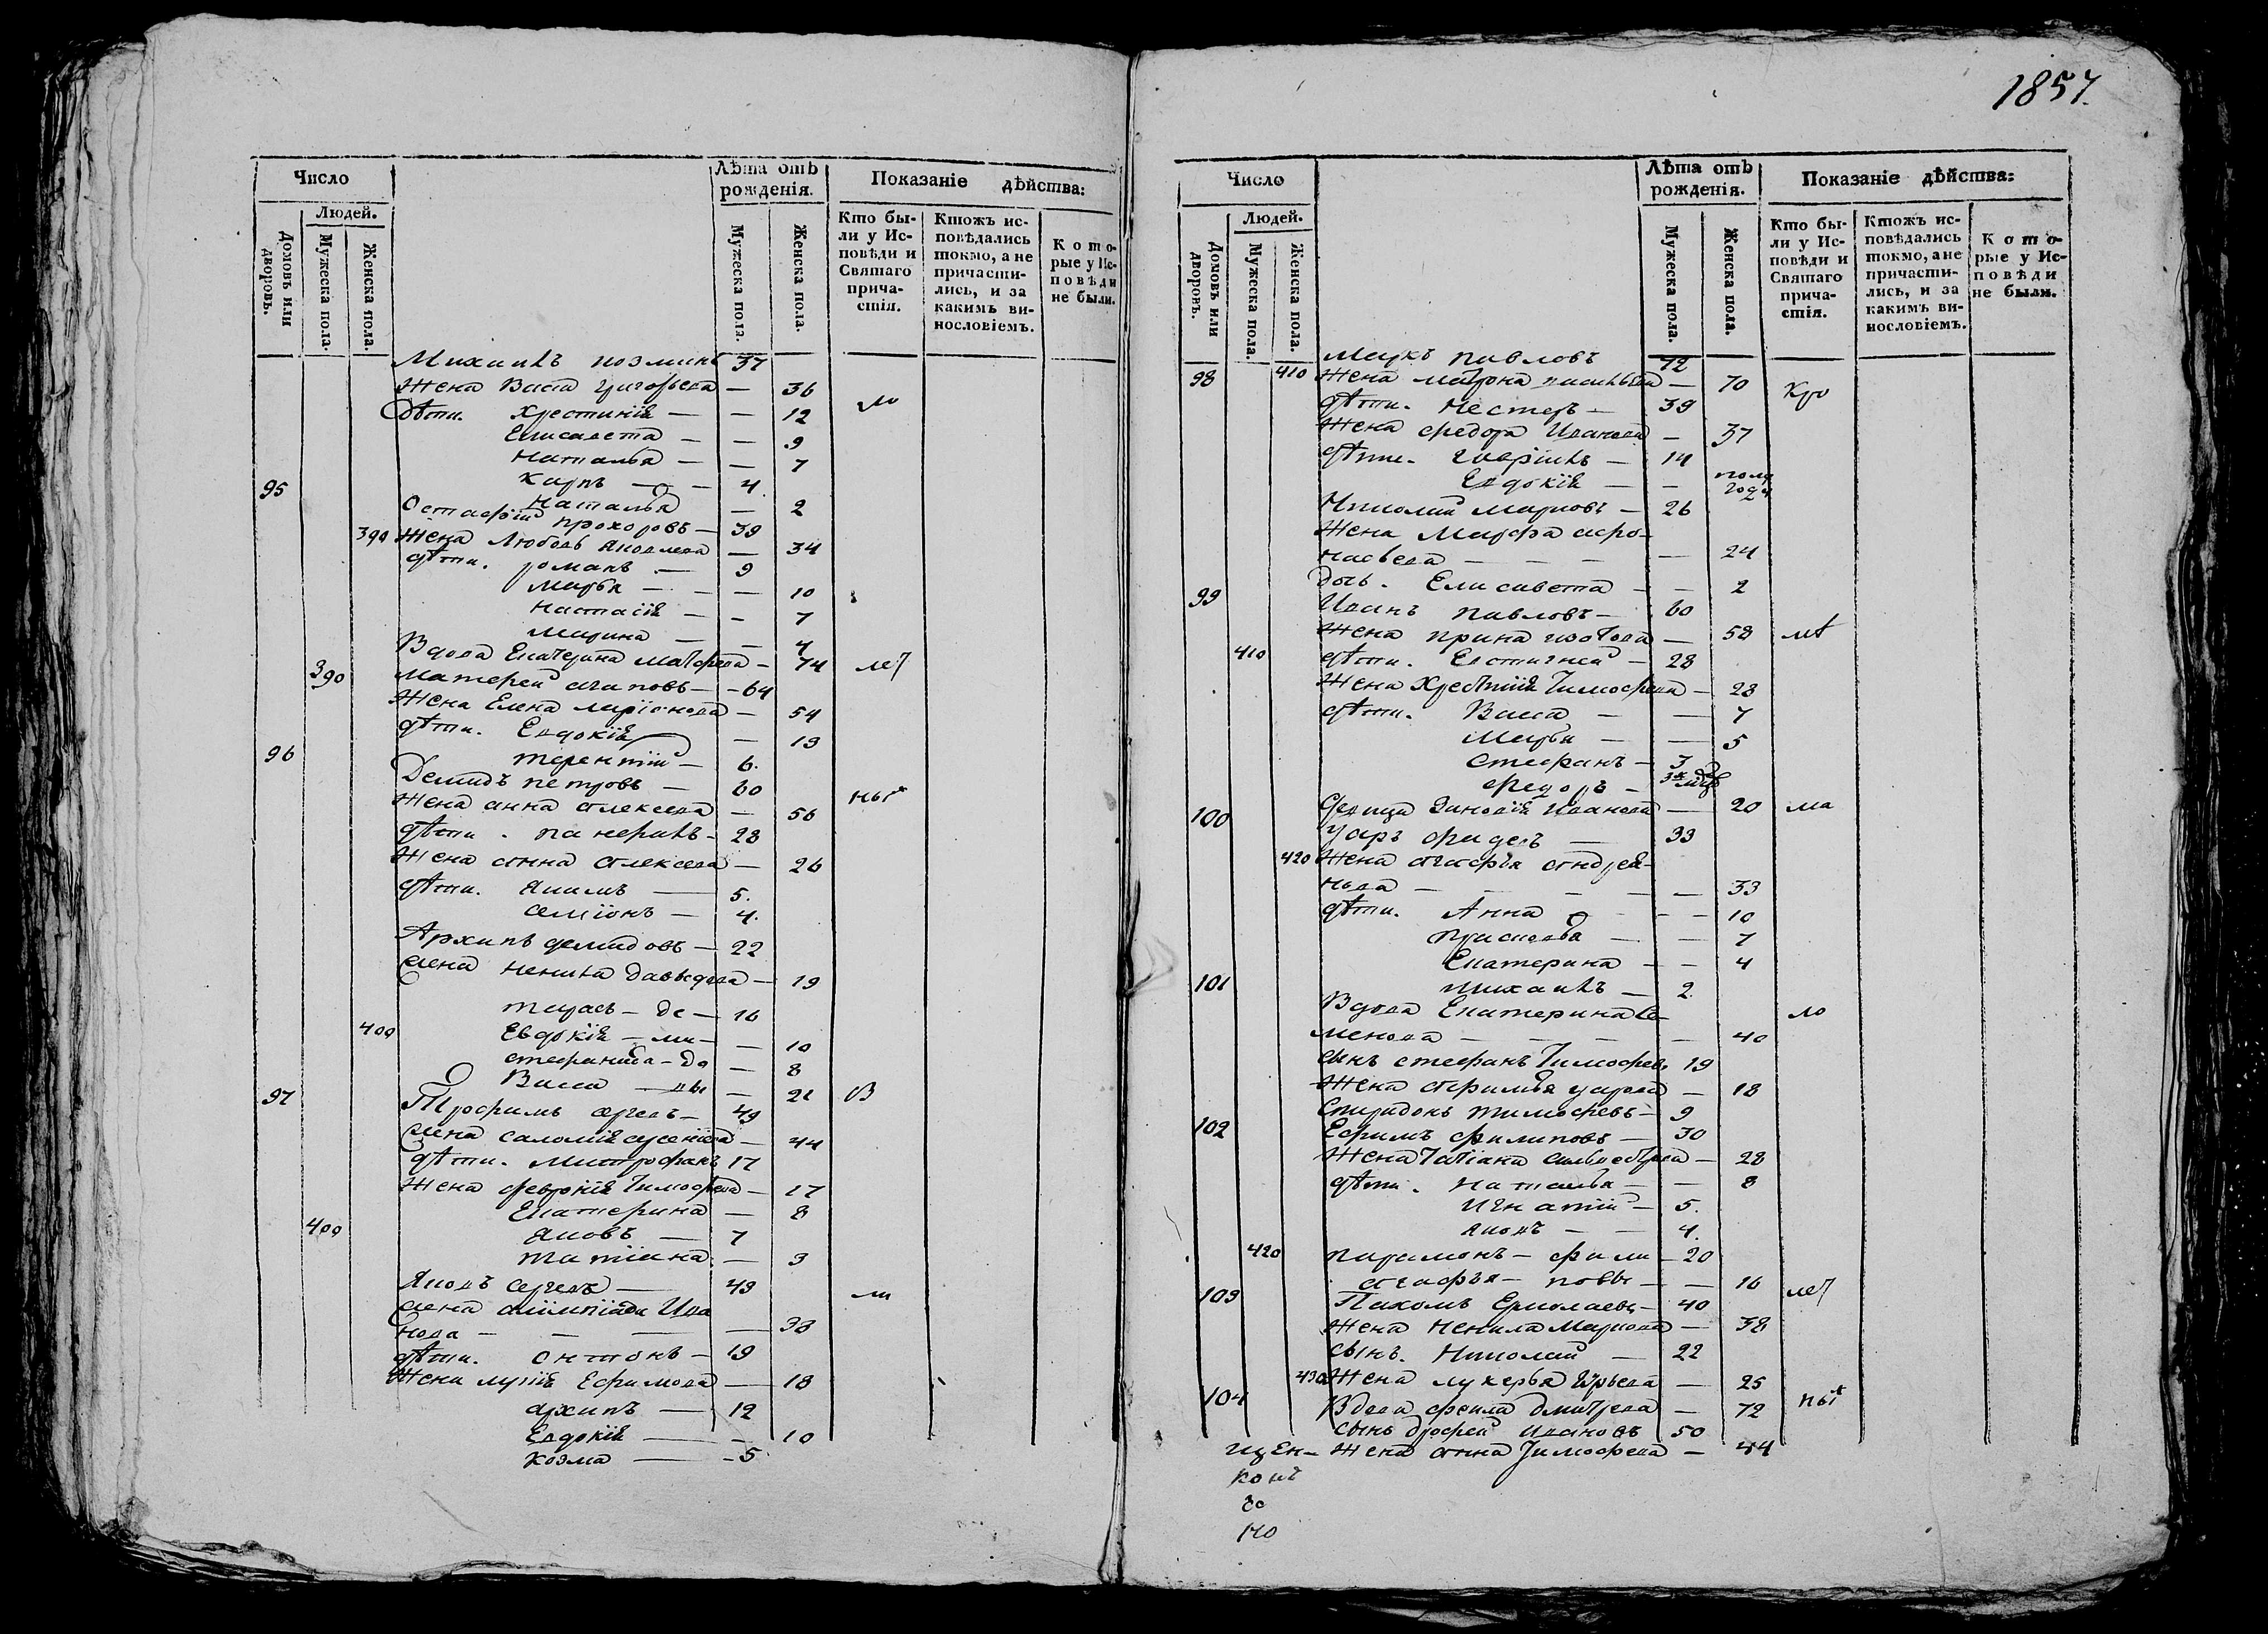 1857.
Число
Людей.
Домовъ или дворовъ.
Мужеска пола.
Женска пола.
Лѣта отъ рожденія.
Мужеска пола.
Женска пола.
Показаніе дѣйства:
Кто бы-
ли у Ис-
повѣди и
Святаго
прича-
стія.
Ктожъ ис-
повѣдались
токмо, а не
причасти-
лись, и за
какимъ ви-
нословіемъ.
Кото-
рые у Ис-
повѣди
не были.
Михаилъ козминъ 37
Жена Васса григорьева — 36
дѣти. Хрестинія — — 12
Елисавета — — 9
Наталья — — 7
Карпъ — — 4.
95
Наталья — 2
Остафій прохоровъ — 39
390 Жена Любовь Яковлева — 34
дѣти. романъ — 9
Марья — — 10
Настасія — — 7
Марина — — 4
Вдова Екатерина Матфеева — 74
390 Матфей — 64
Жена Елена — 54
дѣти. Евдокія — 19
96 терентій — 6.
Демидъ петровъ — 60
Жена анна алексеева — 56
дѣти. — 28
Жена анна алексеева — 26
дѣти. Якимъ — 5.
семіонъ — 4.
Архипъ демидовъ — 22
жена ненила давыдова — 19
тарасъ — де — 16
400 Евдокія — ми — — 10
стефанида — до — 8
Васса — вы — 21
97 Трофимъ сергеевъ — 49
жена саломія — 44
дѣти. Митрофанъ 17
Жена февронія Тимофеева — 17
Екатерина — 8
400 Яковъ — 7
татіана — 3
Яковъ сергеевъ — 43
жена олимпіада Ива
нова — — — 38
дѣти. антонъ — 19
Жена Ефимова — 18
архипъ — 12
Евдокія — — 10
козма — 5
Число
Людей.
Домовъ или дворовъ.
Мужеска пола.
Женска пола.
Лѣта отъ рожденія.
Мужеска пола.
Женска пола.
Показаніе дѣйства:
Кто бы-
ли у Ис-
повѣди и
Святаго
прича-
стія.
Ктожъ ис-
повѣдались
токмо, а не
причасти-
лись, и за
какимъ ви-
нословіемъ.
Кото-
рые у Ис-
повѣди
не были.
Маркъ павловъ 72
98 410 Жена матрона васильева — 70
дѣти. Нестеръ — 39
Жена федора Иванова — 37
дѣти. гавріилъ — 14
Евдокія — — пола года
Николай Марковъ — 26
Жена Марфа афо-
насьева — — — 24
дочь. Елисавета — — 2
99 Иванъ павловъ — 60
Жена ирина изотова — 58
410 дѣти. Евстигней — 28
Жена Хрестинія Тимофеева — 28
дѣти. Васса — — 7
Марья — — 5
стефанъ — 3
федоръ —
100 девица Зиновія Иванова — 20
33
420 Жена агафья андрея-
нова — — — 33
дѣти. Анна — — 10
прасковья — — 7
Екатерина — — 4
101 михаилъ — 2.
Вдова Екатерина Се-
менова — — — 40
сынъ стефанъ Тимофеев. 19
Жена — 18
Спиридонъ тимофеевъ — 9
102 Ефимъ филиповъ — 30
Жена Татіана — 28
дѣти. Наталья — — 8
Игнатій — 5.
Яковъ — — 4.
420 парамонъ — фили — 20
агафья — повы — — 16
103 Пахомъ Ермолаевъ — 40
Жена Ненила Маркова — 38
сынъ. Николай — 22
430 Жена лукерья Юрьева — 25
104 Вдова фекла дмитреева — 72
сынъ дорофей Ивановъ 50
Жена анна Тимофеева — 44